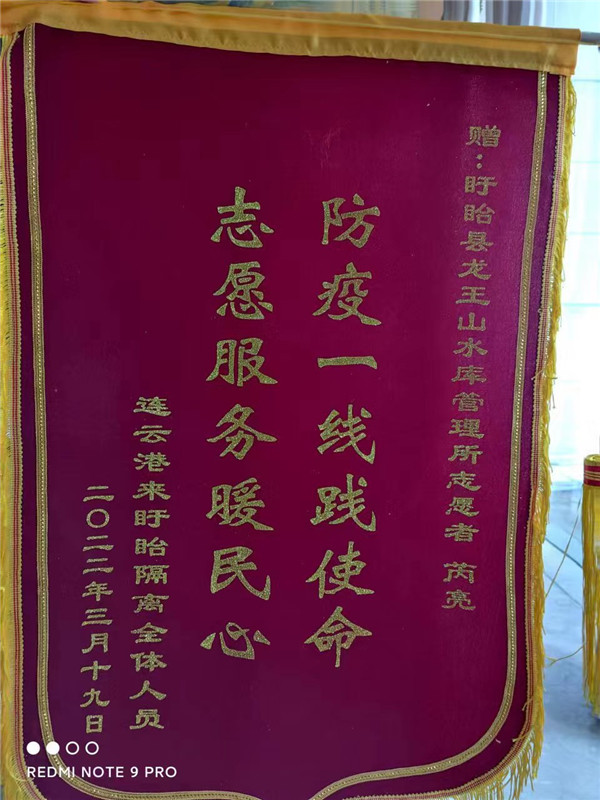 赠：盱眙县龙王山水库管理所志愿者 芮亮
防疫一线践使命
志愿服务暖民心
连云港来盱眙隔离全体人员
二〇二二年三月十九日
REDMI NOTE 9 PRO